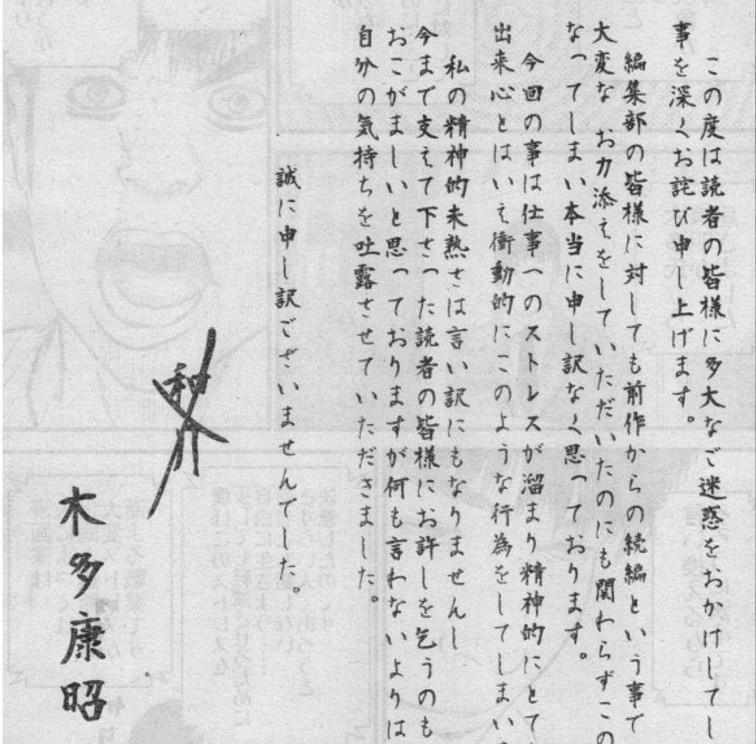 この度は読者の皆様に多大なご迷惑をおかけしてし
事を深くお詫び申し上げます。
編集部の皆様に対しても前作からの続編という事で
大変な お力添えをしていただいたのにも関わらずこの
なってしまい本当に申し訳なく思っております。
今回の事は仕事へのストレスが溜まり精神的にとて
出来心とはいえ衝動的にこのような行為をしてしまい
私の精神的未熟さは言い訳にもなりませんし
今まで支えて下さった読者の皆様にお許しを乞うのも
おこがましいと思っておりますが何も言わないよりは
自分の気持ちを吐露させていただきました。
誠に申し訳ございませんでした。
木多康昭